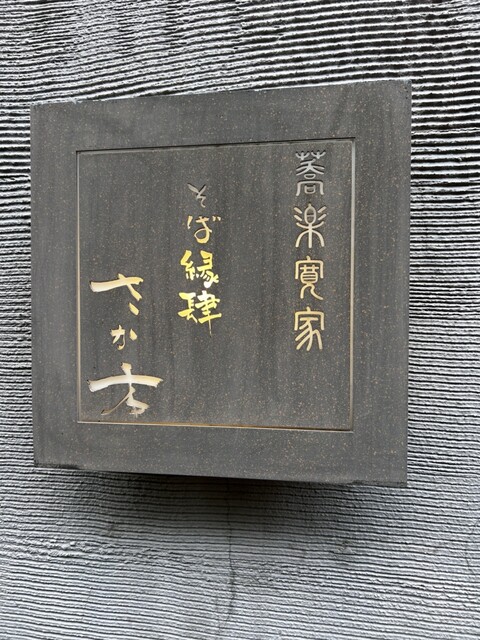 蕎楽寛家
そば縁肆
さか方